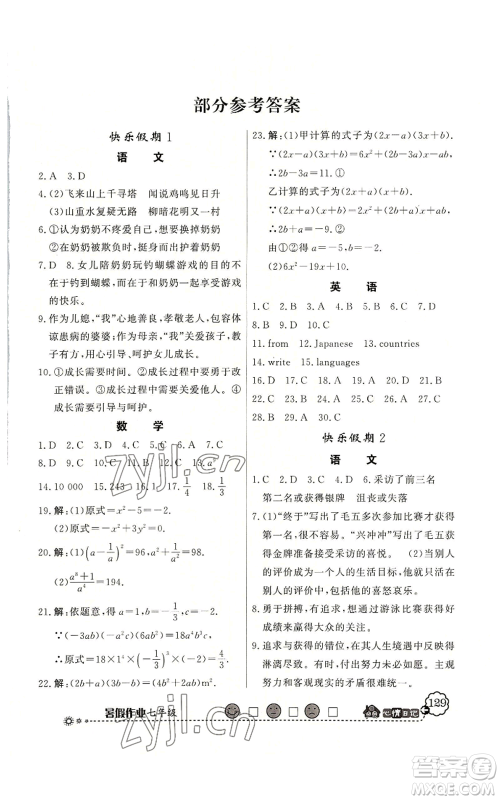 部分参考答案
快乐假期1
语 文
2. A 3. D
4. (2)飞来山上千寻塔 闻说鸡鸣见日升
(3)山重水复疑无路 柳暗花明又一村
6. ①认为奶奶不疼爱自己,想要换掉奶奶
②认为奶奶不好,所以故意说反话
7. D 8. 女儿陪奶奶玩钓蝴蝶游戏的目的不
在于钓到蝴蝶,而在于享受与奶奶在一起
的快乐。
9. 作为儿媳,“我”心地善良,孝敬老人,包容体
谅患病的婆婆;作为母亲,“我”关爱孩子,
善于教育引导、呵护女儿成长。
10. ①成长需要时间。②成长过程中要勇于改
正错误。③成长过程中需要他人宽容。④
成长需要引导与呵护。
数 学
1. D 2. C 3. C 4. D 5. C 6. A 7. C
8. D 9. D 10. C 11. D 12. C 13. a⁶
14. 10 000 15. 243 16. 1 17. 1/4 18. 1/4
19. 解:(1)原式=x²-5=-2.
(2)原式=-x²+3y²=0.
20. 解:(1)(a-1/a)²=96,
(2)(a⁸+1)/a⁴=194.
21. 解:依题意,得a=1,b=-1/3,c=-2.
∵(-3ab)·(-a²c)·(6ab²)=18a⁴b³c,
∴原式=18×1⁴×(-1/3)³×(-2)=4/3.
22. 解:(2ab+2ac+2a²)m².
23. 解:(1)甲计算的式子为(2x-a)(3x+b).
∵(2x-a)(3x+b)=6x²+(2b-3a)x-ab,
∴2b-3a=11.①
乙计算的式子为(2x+a)(x+b).
∵(2x+a)(x+b)=2x²+(a+2b)x+ab,
∴2b+a=-9.②
由①②得a=-5,b=-2.
(2)6x²-19x+10.
英 语
1. C 2. D 3. A 4. D 5. C 6. B 7. A
8. D 9. C 10. D
11. from 12. Japanese 13. countries
14. write 15. languages
16. D 17. D 18. A 19. C 20. D 21. A
22. C 23. D 24. B 25. C 26. D 27. A
28. B 29. A 30. C
快乐假期2
语 文
1. C 2. D 3. C 4. D 6. 采访了前三名
第二名或获得银牌 沮丧或失落
7. (1)“终于”写出了毛五多次参加比赛才获得
第一名的不易。“兴冲冲”写出了毛五获得
金牌准备接受采访的喜悦。(2)当别人
的评价成为一个人的生活目标,他就陷入
了困境,为他人的评价而喜怒哀乐。
8. 勇于拼搏,有追求,想通过游泳比赛获得好
成绩来赢得大众的关注。
9. 追求与感悟往往在其人生境遇中表现得淋
漓尽致。有追求,人生境界才能开阔;有感
悟,我们努力无悔今生。
暑假作业七年级
129
zyjl.cn